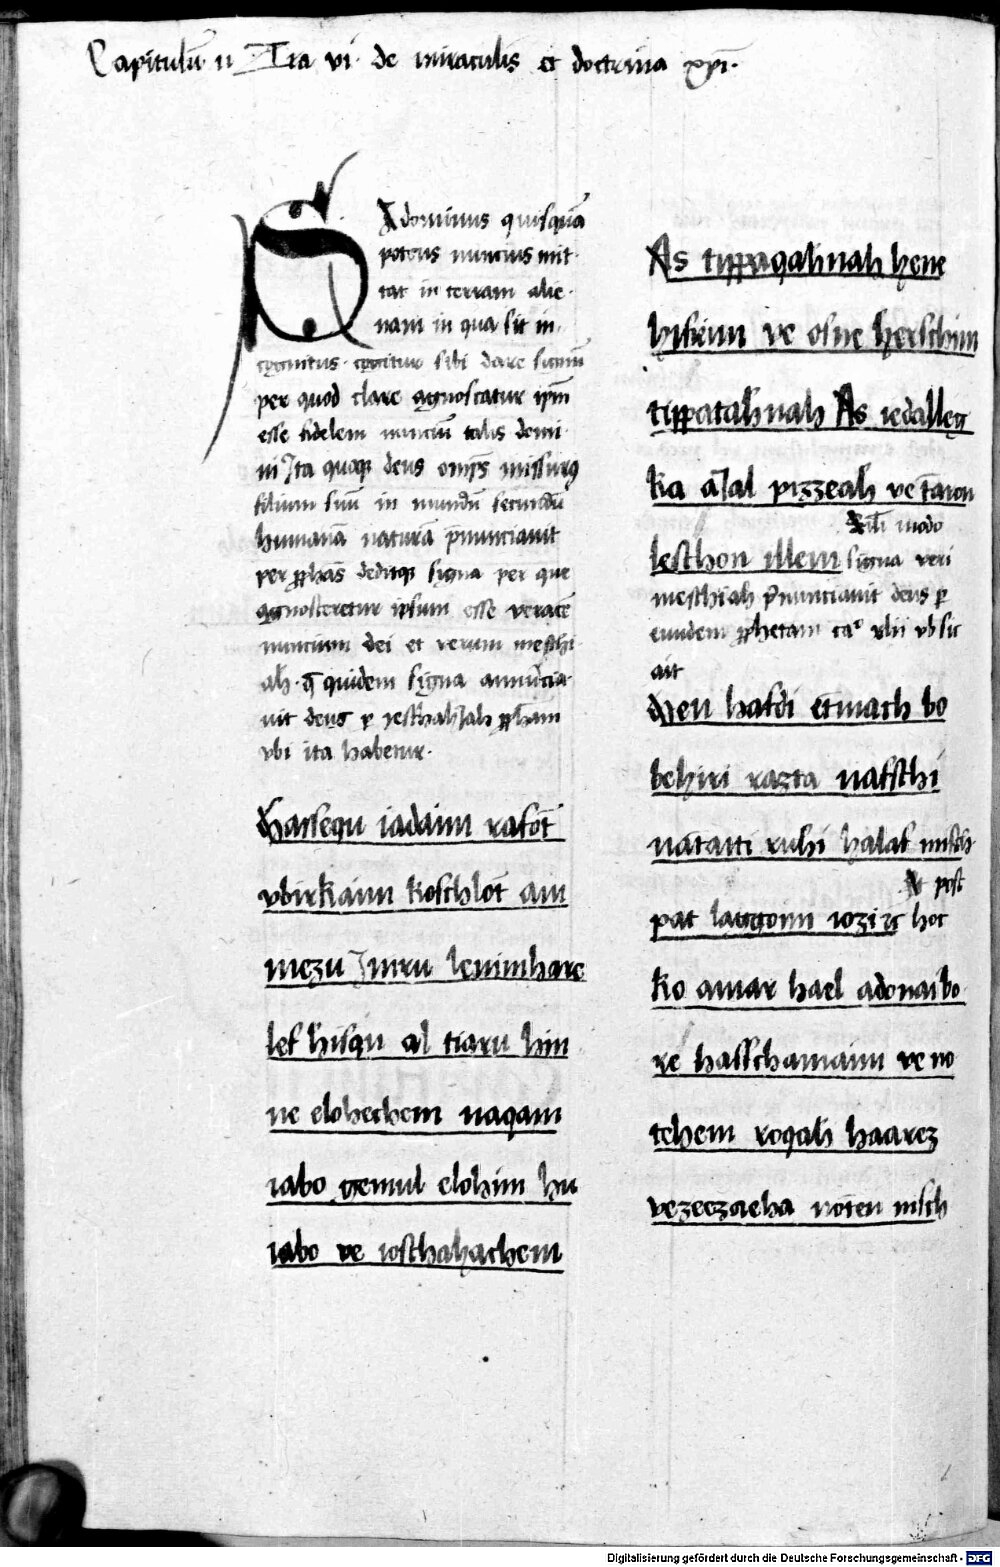 Capitulū ii Tra vi de miraculis et doctrina xpi.
Si dominus quisquā
potens nuncius mit
tat in terram alie
nam in qua sit in
cognitus cogitur sibi dare signū
per quod clare agnoscatur ipm̄
esse fidelem nunciū talis domi
ni Ita quoque deus omps̄ missurꝰ
filium suū in mundū secundū
humanā naturā p̄nunciauit
per ꝓphās deditque signa per que
agnosceretur ipsum esse veracē
nuncium dei et verum meschi
ah. q̄ quidem signa annuncia
uit deus ꝑ jeschahIah ꝓpham̄
vbi ita habetur.
Hassequ iadaim rafōt
vbirkaim koschlōt am
mezu Imru lenimhare
lef hisqu al tiaru hin
ne elohechem naqam
iabo gemul elohim hu
iabo ve ioschahachem
As tippaqahnah hene
hifrim ve osne herschim
tippatahnah As iedalleg
ka aIal pizzeah ve tāron
leschon illem signa veri
meschiah p̄nunciauit deus ꝑ
eundem ꝓphetam cao xlii vb sic
ait
Hen hafdi etmach bo
behiri razta nafschi
natatti ruhi halaf misch
Et post
pat laggoim iozi ic hoc
ko amar hael adonai bo
re hasschamaim ve no
tehem roqah haarez
vezeezaeha noten nisch
Digitalisierung gefördert durch die Deutsche Forschungsgemeinschaft - DFG